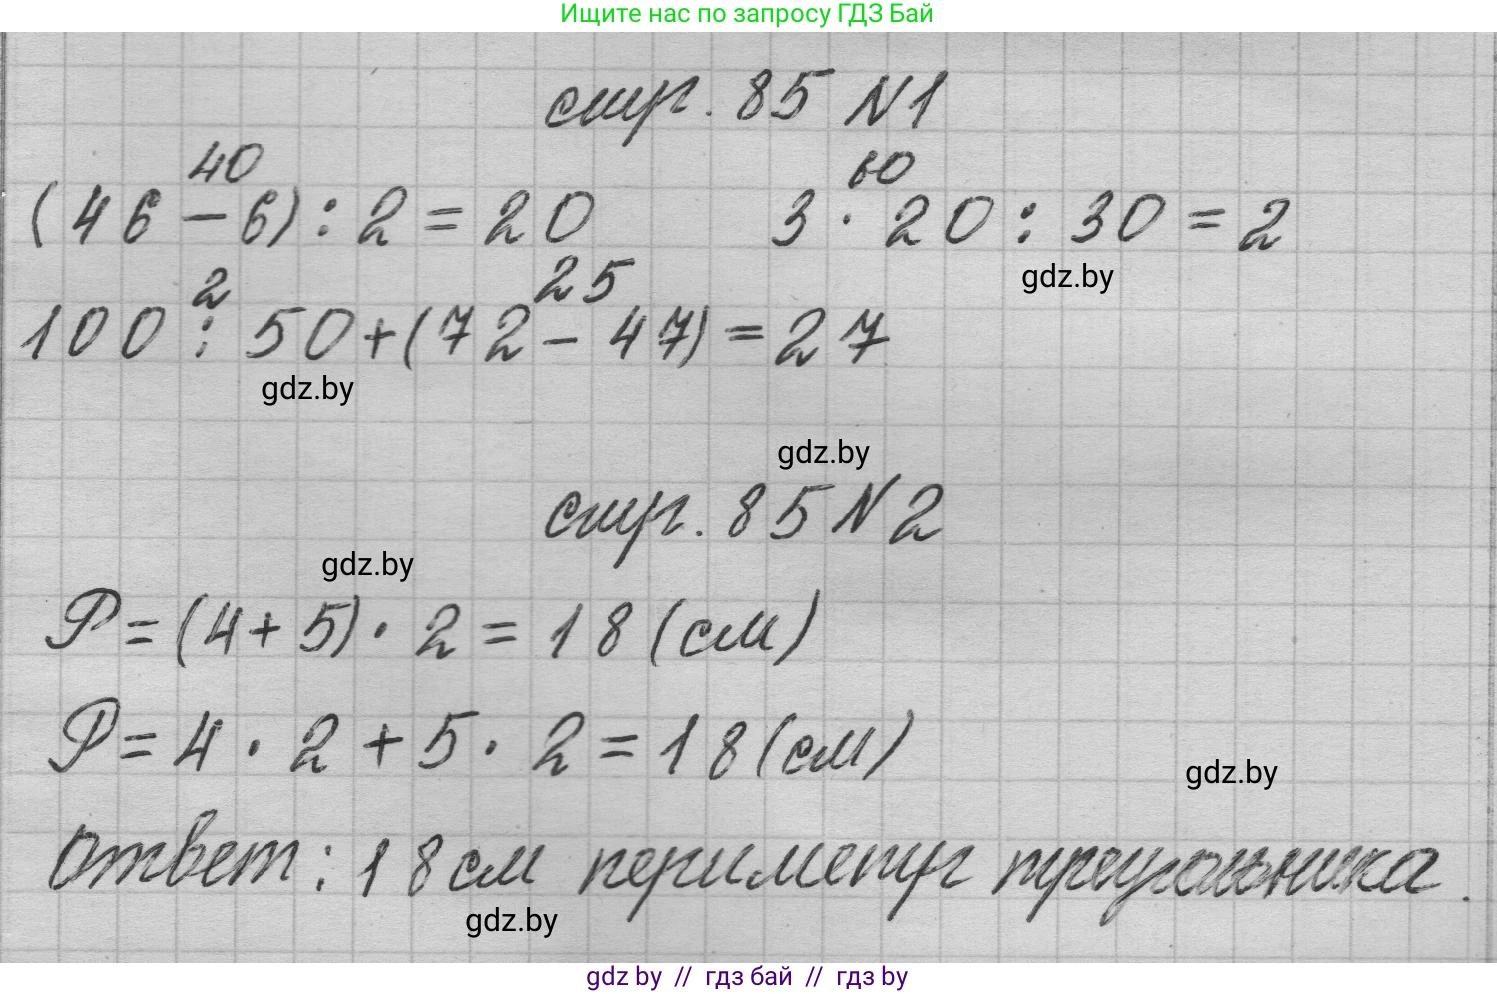 Ищите нас по запросу ГДЗ Бай
стр. 85 N1
40 60
(46 - 6) : 2 = 20 3 · 20 : 30 = 2
gdz.by
2 25
100 : 50 + (72 - 47) = 27
gdz.by
gdz.by
стр. 85 N2
gdz.by
P = (4 + 5) · 2 = 18 (см)
P = 4 · 2 + 5 · 2 = 18 (см)
gdz.by
Ответ: 18 см периметр треугольника.
gdz.by
gdz by // гдз бай // gdz by